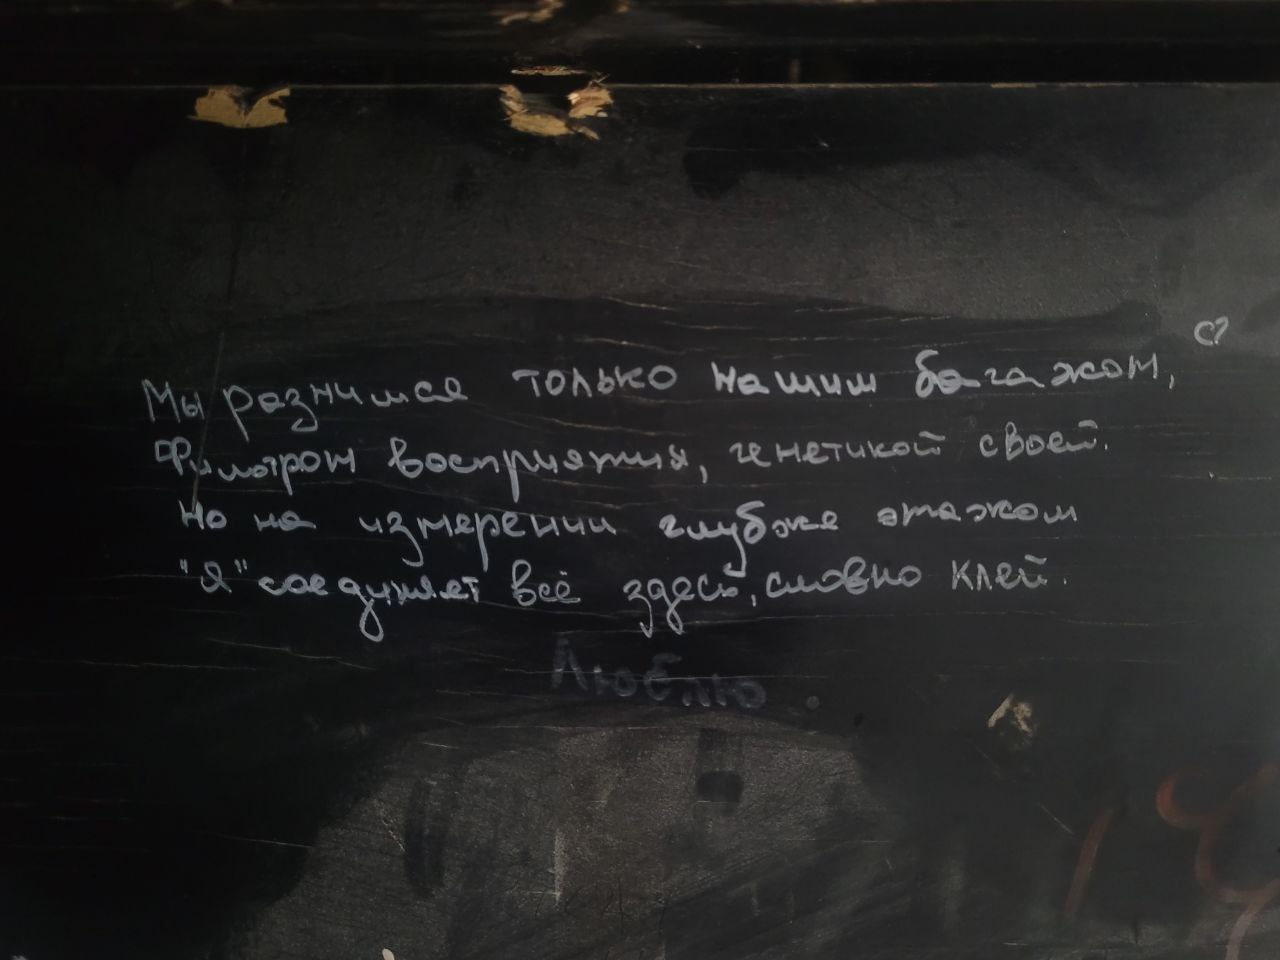 Мы разнимся только нашим багажом,
Фильтром восприятия, генетикой своей.
Но на измерении глубже этажом
"Я" соединяет всё здесь, словно клей.
Люблю.